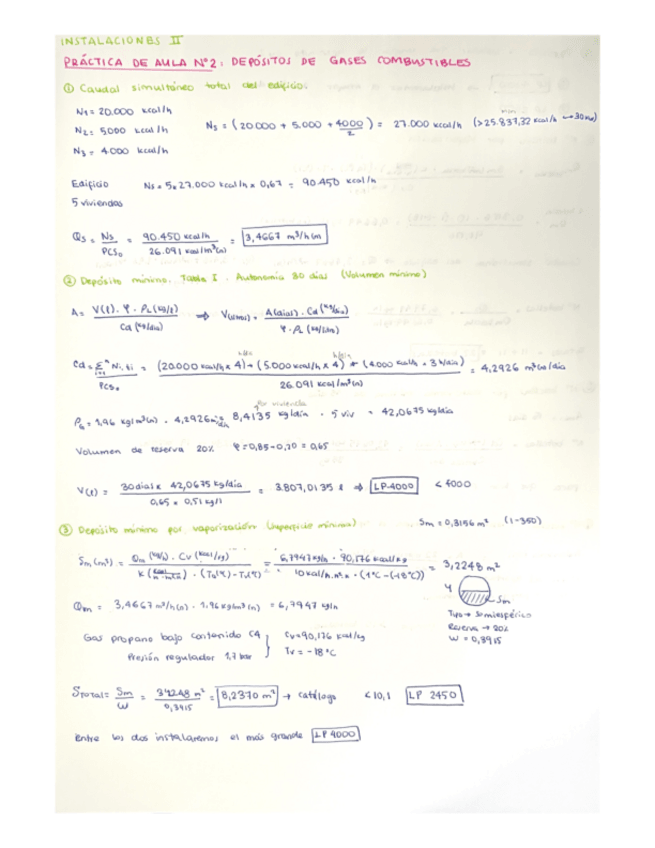 INSTALACIONES II
PRÁCTICA DE AULA Nº2: DEPÓSITOS DE GASES COMBUSTIBLES
① Caudal simultáneo total del edificio:
N1 = 20.000 kcal/h
N2 = 5000 kcal/h
N3 = 4.000 kcal/h
Ns = (20000 + 5.000 + 4000/2) = 27.000 kcal/h (>25.837,32 kcal/h → 30 kW)
Edificio Ns = 5 x 27.000 kcal/h x 0,67 = 90.450 kcal/h
5 viviendas
Qs = Ns/PCSo = 90.450 kcal/h / 26.091 kcal/m³(n) = 3,4667 m³/h(n)
② Depósito mínimo. Tabla I. Autonomía 30 días (Volumen mínimo)
A = V(l) · φ · ρL (kg/l) / Cd (kg/día) ⇒ V(litros) = A(días) · Cd (kg/día) / φ · ρL (kg/litro)
Cd = Σ Ni · ti / PCSo = (20000 kcal/h x 4) + (5.000 kcal/h x 4) + (4.000 kcal/h x 3 h/día) / 26.091 kcal/m³(n) = 4,2926 m³(n)/día
por vivienda
ρG = 1,96 kg/m³(n) · 4,2926 m³/día 8,4135 kg/día · 5 viv = 42,0675 kg/día
Volumen de reserva 20% φ = 0,85 - 0,20 = 0,65
V(l) = 30 días x 42,0675 kg/día / 0,65 x 0,51 kg/l = 3.807,0135 l ⇒ LP-4000 < 4000
③ Depósito mínimo por vaporización (superficie mínima) Sm = 0,3156 m² (1-350)
Sm (m²) = Qm (kg/h) · Cv (kcal/kg) / K · (Tg(ºC) - Tv(ºC)) = 6,7947 kg/h · 90,176 kcal/kg / 10 kcal/h.m².ºC · (1ºC - (-18ºC)) = 3,2248 m²
Sm
Qm = 3,4667 m³/h(n) · 1,96 kg/m³(n) = 6,7947 kg/h
Tipo → Semiesférico
Reserva → 20%
W = 0,3915
Gas propano bajo contenido C4 Cv = 90,176 kcal/kg
Presión regulador 1,7 bar Tv = -18ºC
STOTAL = Sm/W = 3,2248 m² / 0,3915 = 8,2370 m² → catálogo < 10,1 LP 2450
Entre los dos instalaremos el más grande LP 4000